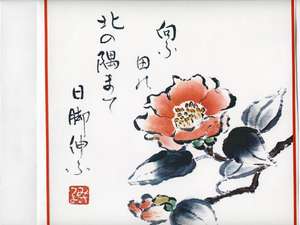 向ふ
田の
北の隅まで
日脚伸ぶ